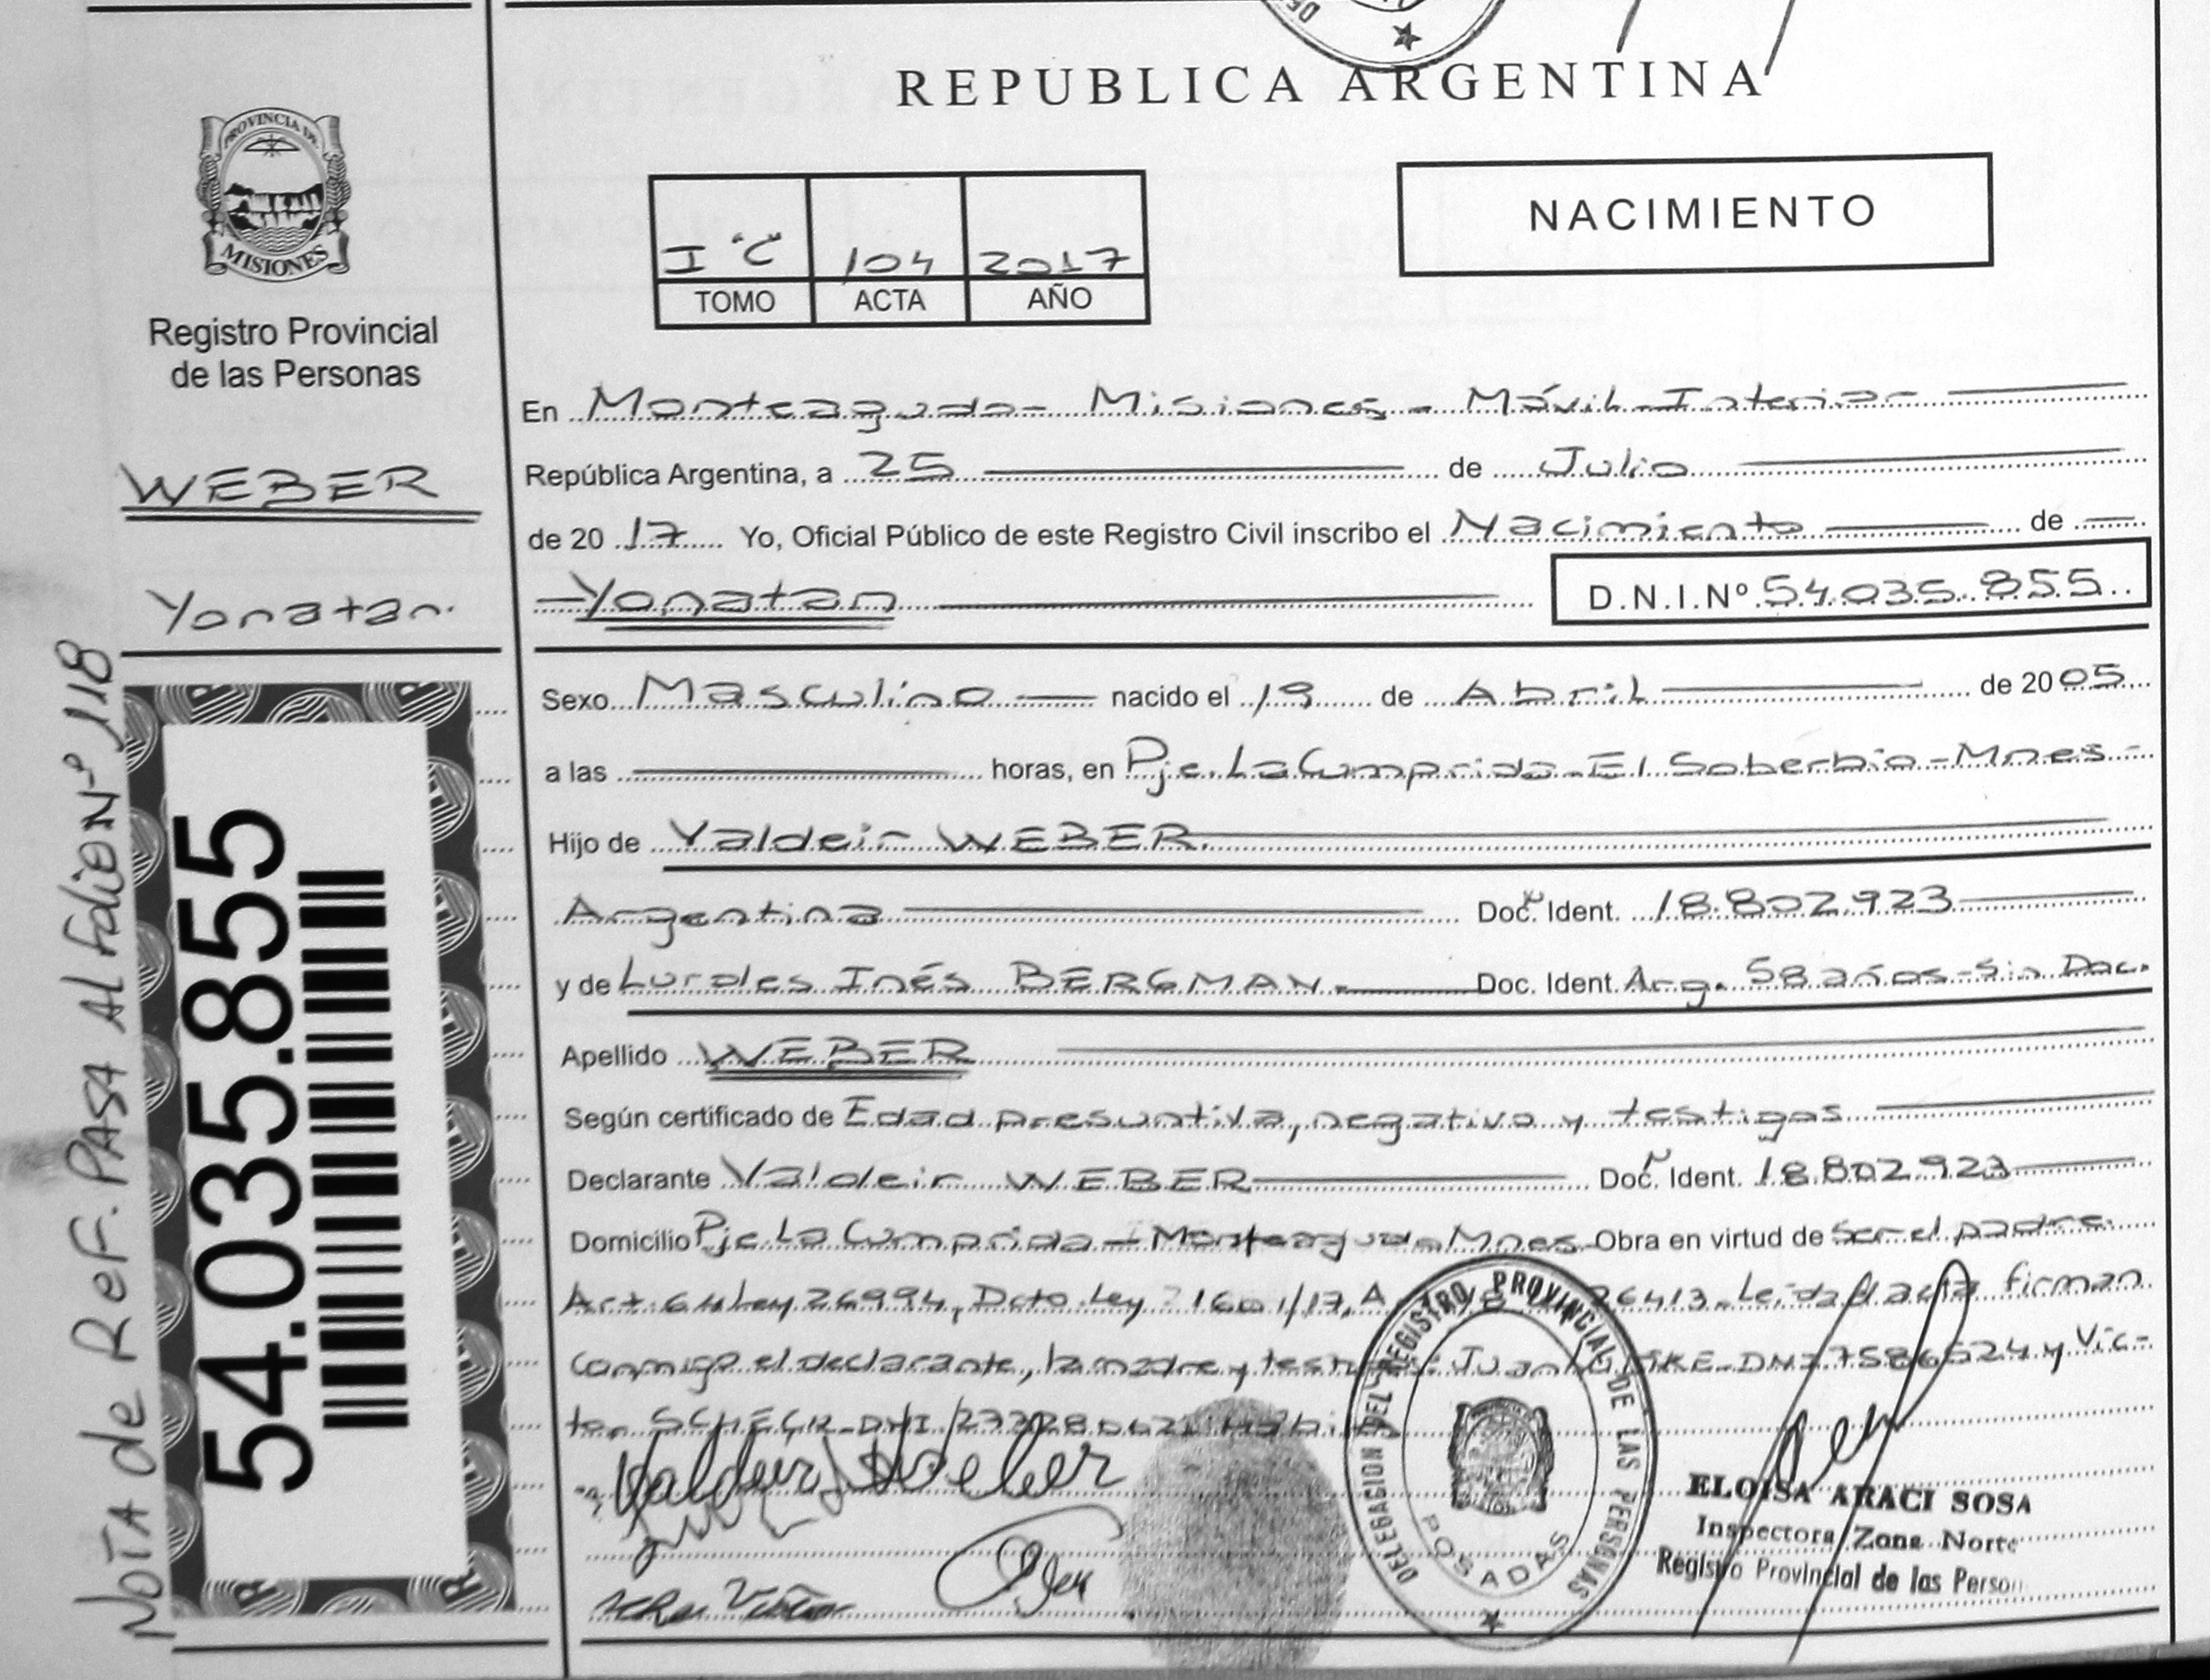 REPUBLICA ARGENTINA
PROVINCIA DE
MISIONES
Registro Provincial
de las Personas
I "C" 104 2017
TOMO ACTA AÑO
NACIMIENTO
WEBER
Yonatan.
NOTA de Ref. PASA Al folio N° 118
54.035.855
En Monteagudo- Misiones - Móvil Interior
República Argentina, a 25 de Julio
de 20 17 Yo, Oficial Público de este Registro Civil inscribo el Nacimiento de
Yonatan D.N.I.Nº 54.035.855
Sexo Masculino nacido el 19 de Abril de 20 05
a las horas, en Pje. La Cumprida - El Soberbio - Mnes -
Hijo de Valdeir WEBER.
Argentina Doc. Ident. 18.802.923
y de Lurdes Inés BERGMAN. Doc. Ident. Arg. 58 años - Sin Doc.
Apellido WEBER
Según certificado de Edad presuntiva, negativo y testigos
Declarante Valdeir WEBER Doc. Ident. 18.802.923
Domicilio Pje La Cumprida - Monteagudo Mnes Obra en virtud de ser el padre
Art. 64 Ley 26994, Dcto. Ley 1601/17, 26413. Leida el acta firman
conmigo el declarante, la madre y Juan DNI y Víc-
tor DNI
Valdeir Weber
DELEGACION DEL REGISTRO PROVINCIAL DE LAS PERSONAS
POSADAS
ELOISA ARACI SOSA
Inspectora Zona Norte
Registro Provincial de las Person